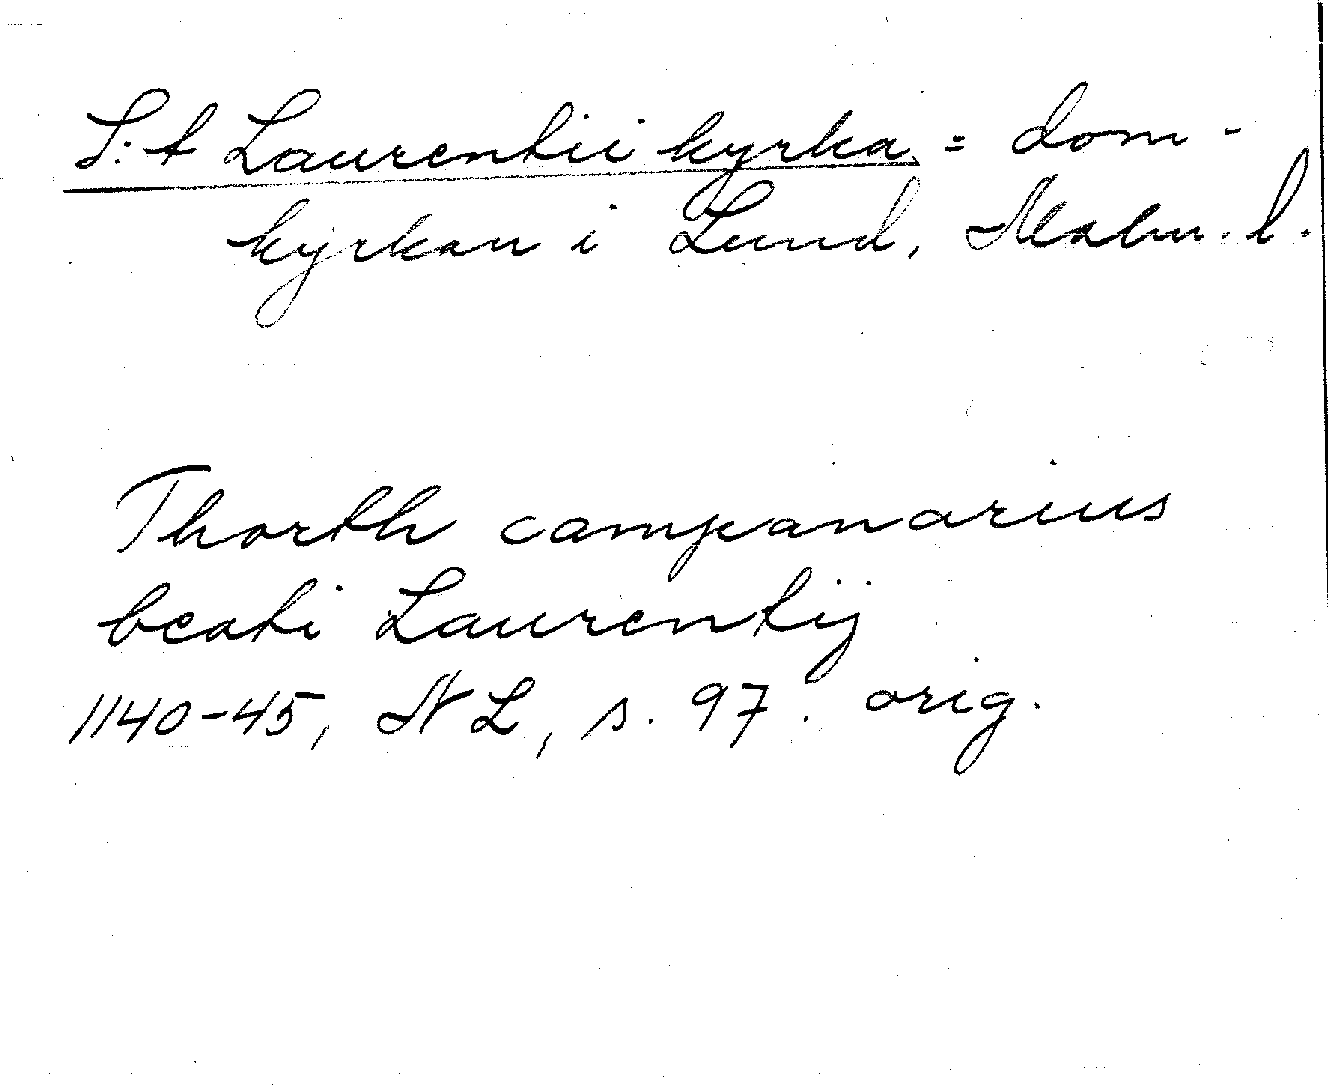 S:t Laurentii kyrka = dom-
kyrkan i Lund, Malm. l.
Thorth campanarius
beati Laurentij
1140-45, NL, s. 97. orig.